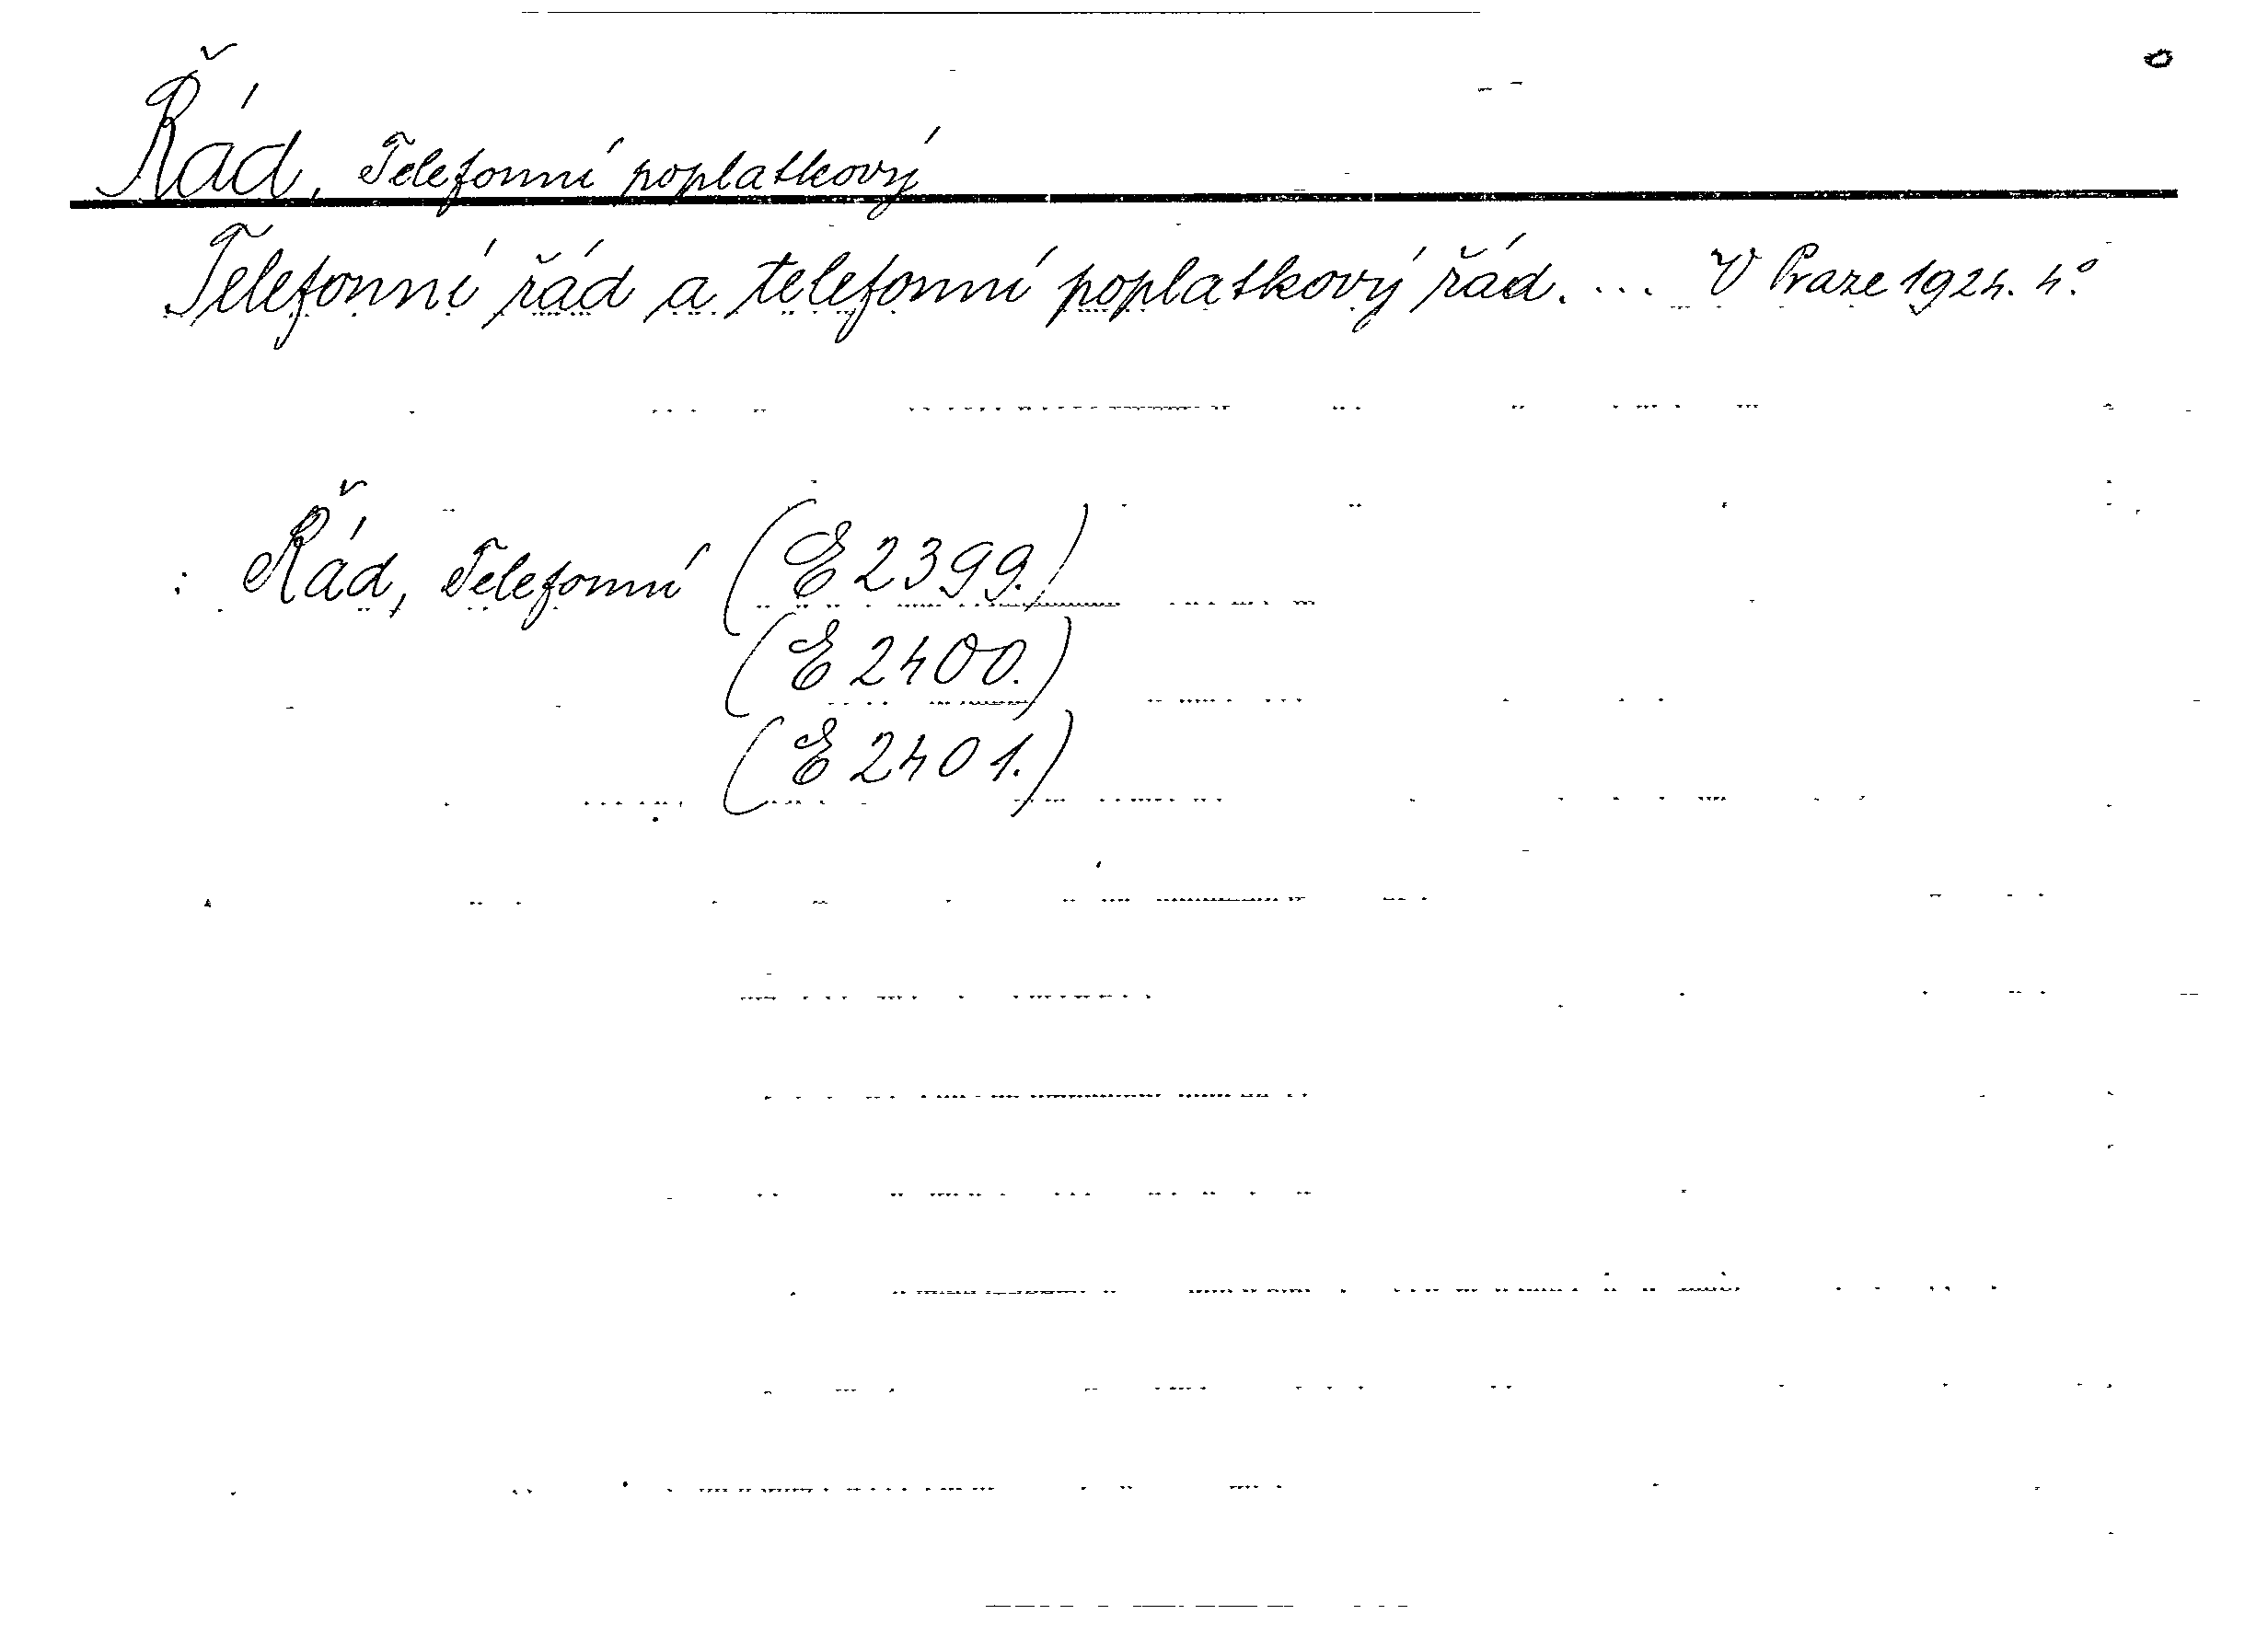 Řád, Telefonní poplatkový
Telefonní řád a telefonní poplatkový řád. ... V Praze 1924. 4°.
: Řád, Telefonní (E 2399.)
(E 2400.)
(E 2401.)